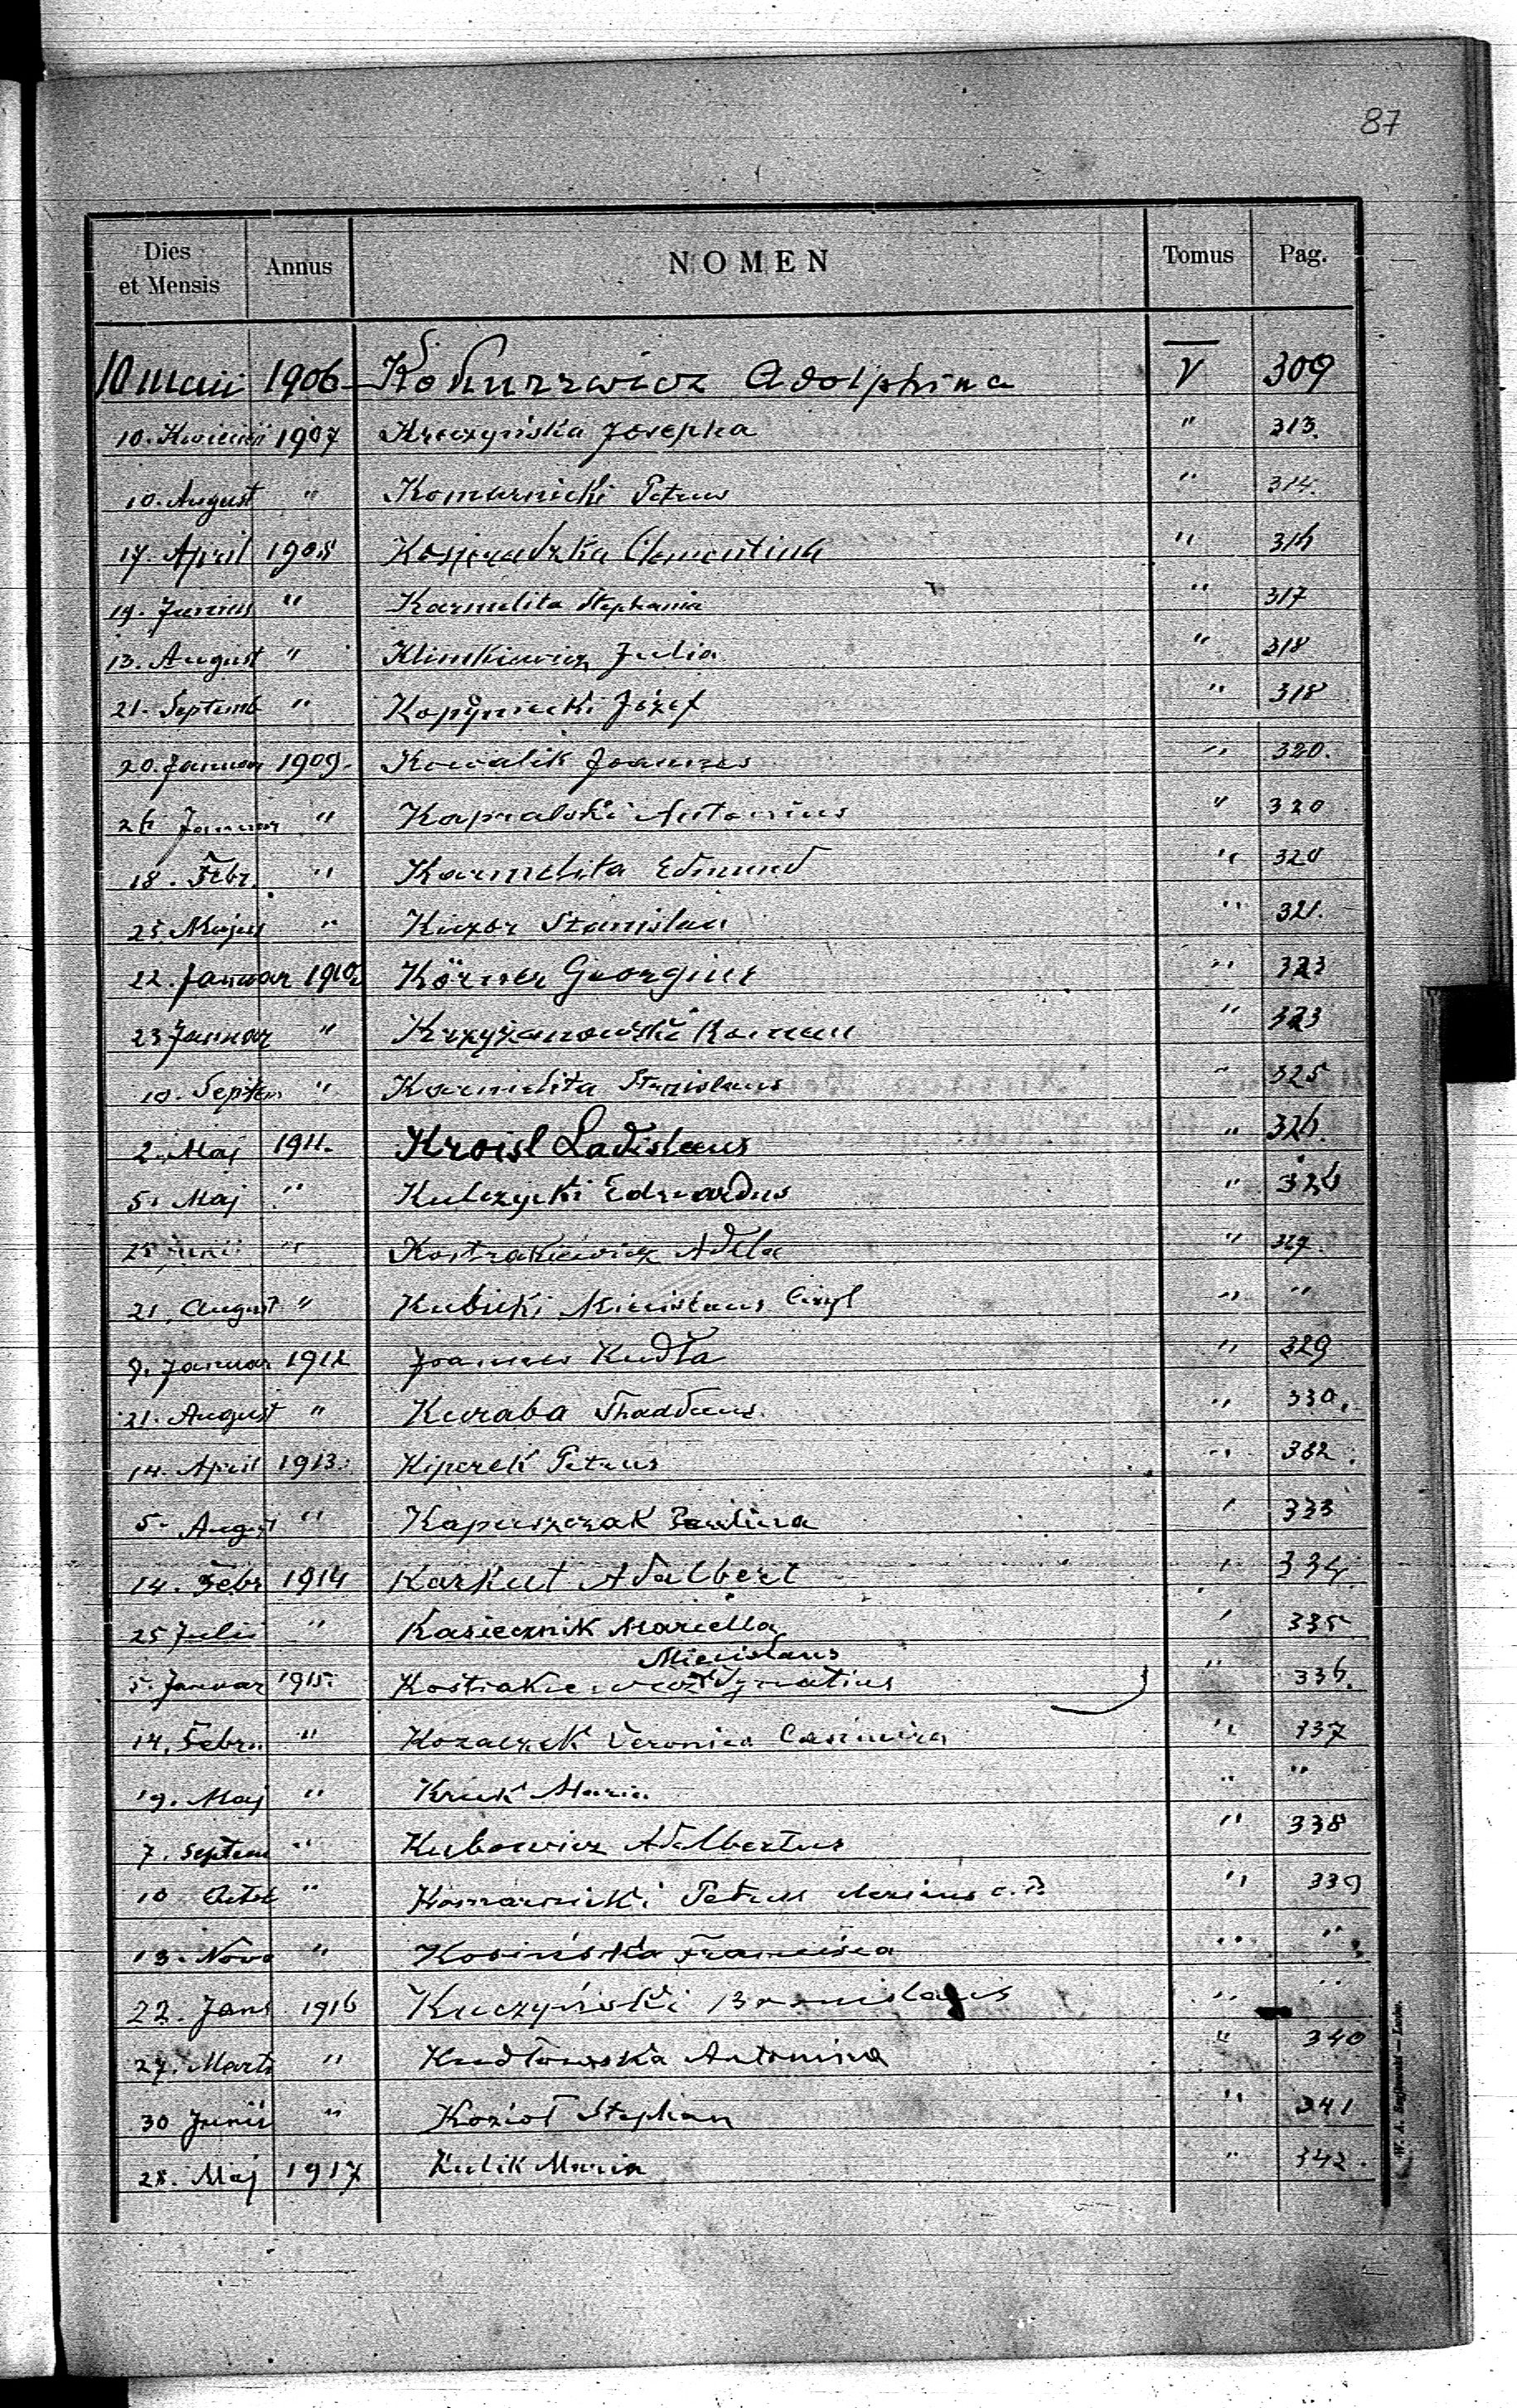 87
Dies et Mensis Annus NOMEN Tomus Pag.
10 Maii 1906 Adolphina V 309
10. 1907 Josepha " 313.
10. August " Komarnicki Petrus " 314.
17. April 1908 Clementina " 316
19. Junius " Karmelita Stephania " 317
13. August " Klimkiewicz Julia " 318
21. Septemb " Józef " 318
20. Januar 1909. Kowalik Joannes " 320.
26 Januar " Kapralski Antonius " 320
18. Febr. " Karmelita Edmund " 320
25. Majus " Stanislaa " 321.
22. Januar 1910 Körner Georgius " 323
23 Januar " Krzyżanowski Roman " 323
10. Septem " Karmelita Stanislaus " 325
2. Maj 1911. Kroisl Ladislaus " 326.
5. Maj " Kulczycki Edwardus " 326
25 Junii " Kostrakiewicz Adela " 327.
21. August " Kubicki Miecislaus Ciryl " "
9. Januar 1912 Joannes Kudła " 329
21. August " Kuraba Thaddaeus. " 330.
14. April 1913. Kiperek Petrus " 332.
5. August " Kapuszczak Paulina " 333
14. Febr 1914 Karkut Adalbert " 334.
25 Julii " Kasiecznik Mariella " 335
Miecislaus
5. Januar 1915. Kostrakiewicz Ignatius " 336.
14. Febru. " Kozaczek Veronica Casimira " 337
19. Maj " Kruk Maria " "
7. Septem " Kubowicz Adalbertus " 338
10 Octob " Komarnicki Petrus " 339
13. Nove " Kosińska Francisca " "
22. Jans 1916 Kuczyński Bronislaus " "
27. Marts " Kudłowska Antonina " 340
30 Junii " Kozioł Stephan " 341
28. Maj 1917 Kulik Maria " 342.